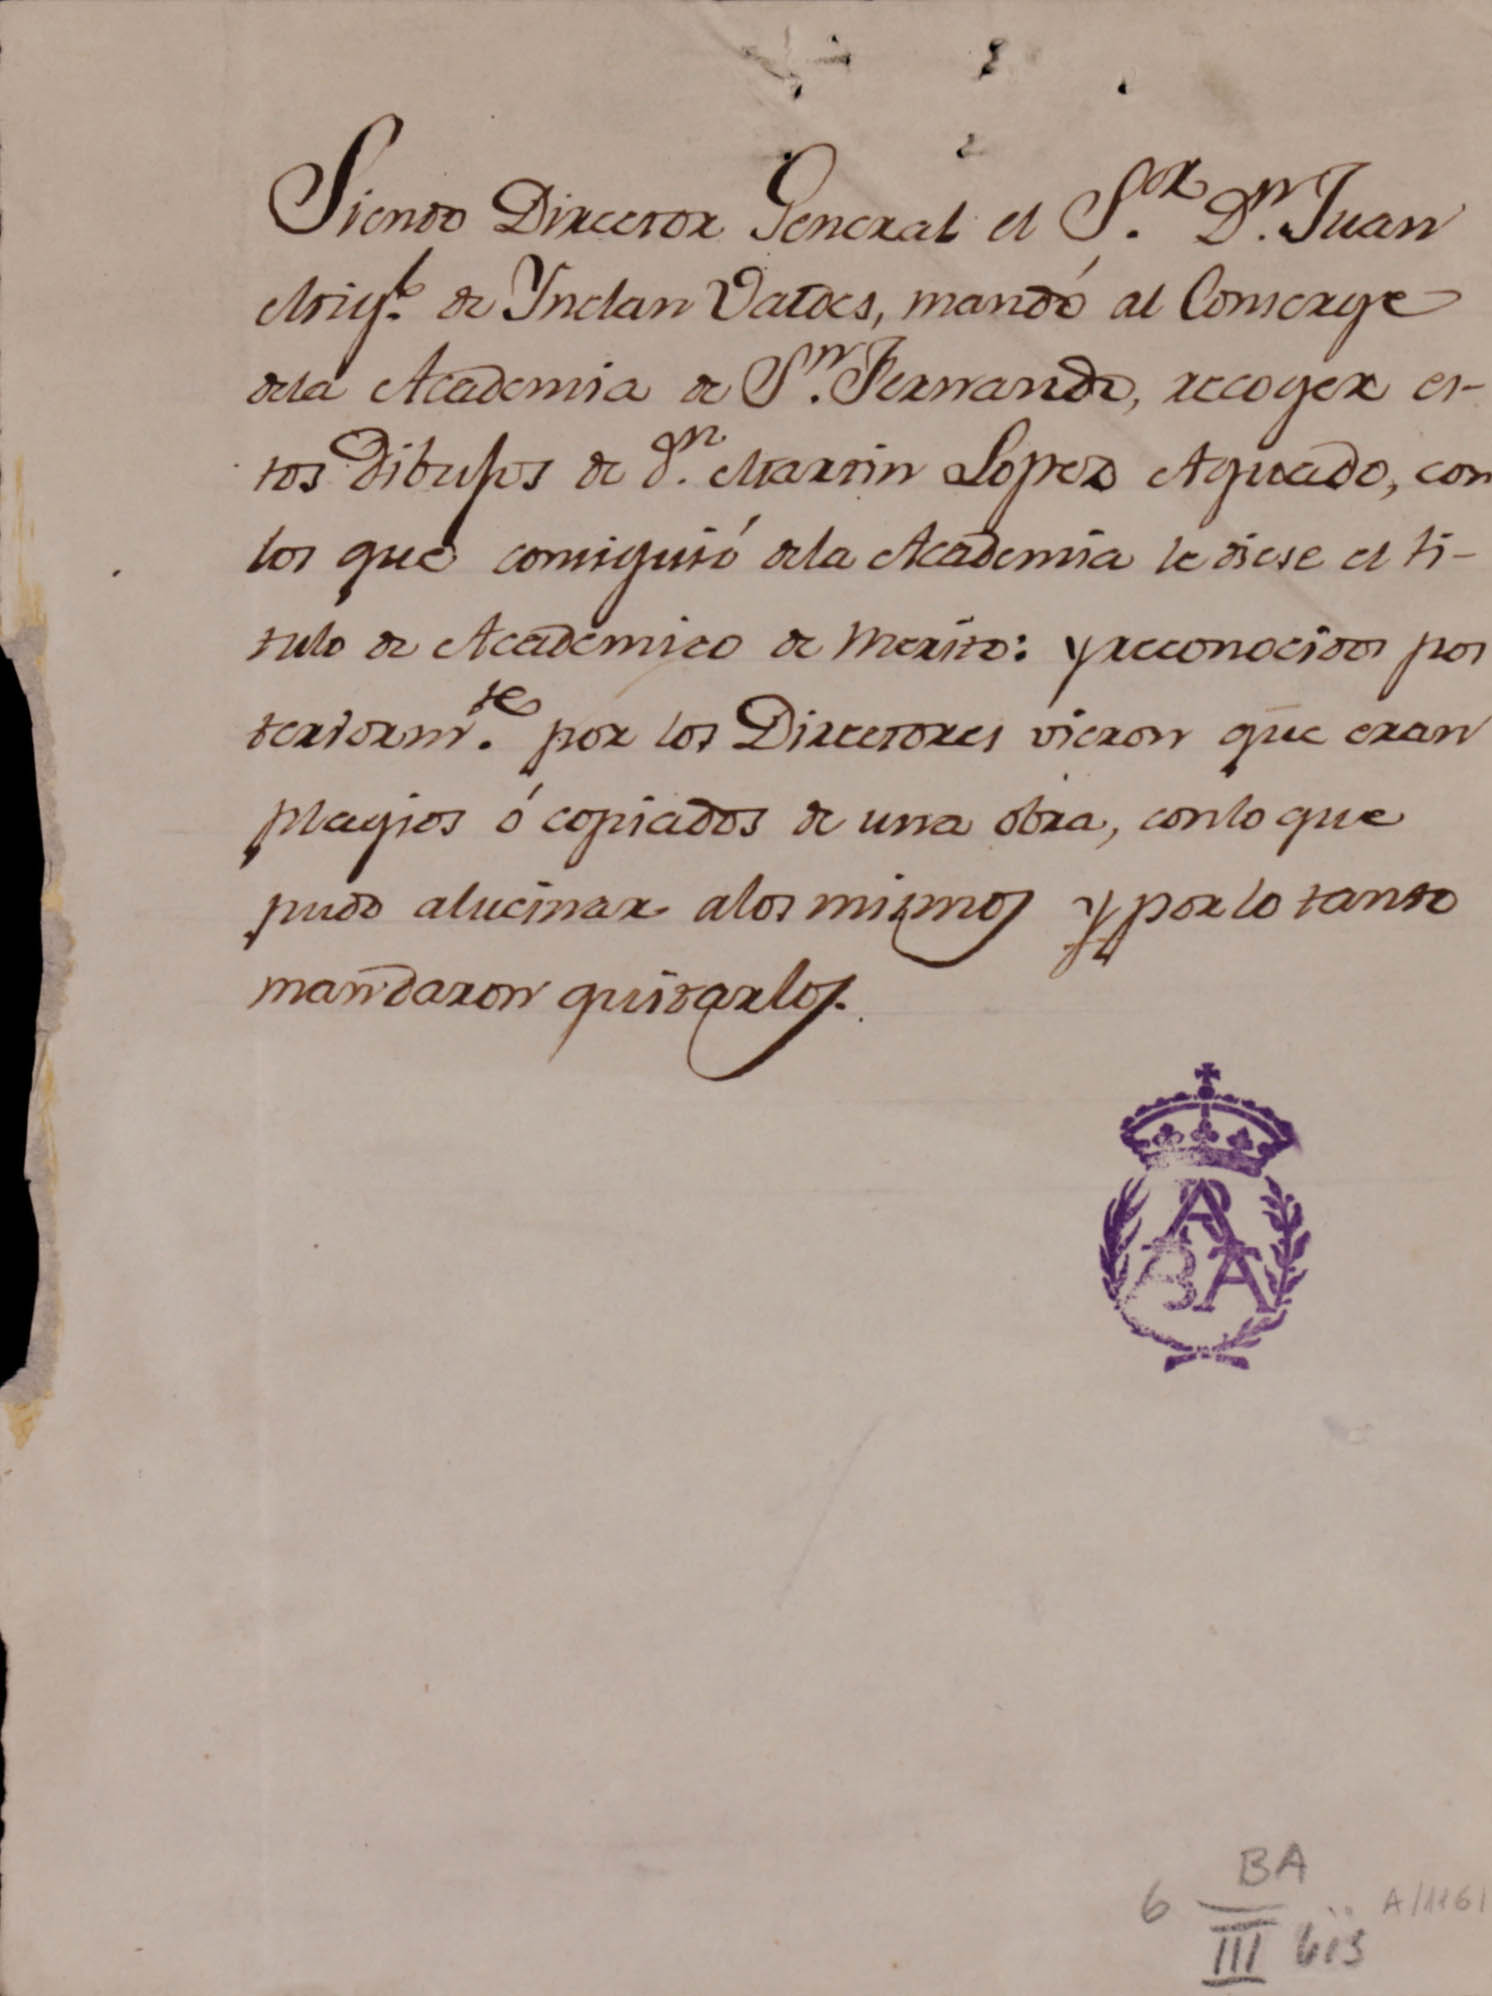 Siendo Director General el S.or D.n Juan
Mig.l de Ynclan Valdes, mandó al Conserge
dela Academia de S.n Fernando, recoger es-
tos Dibujos de D.n Martin Lopez Aguado, con
los que consiguió dela Academia le diese el ti-
tulo de Academico de Merito: y reconocidos pos
teriorm.te por los Directores vieron que eran
plagios ó copiados de una obra, conlo que
pudo alucinar alos mismos y por lo tanto
mandaron quitarlos.
ABA
BA
6
III bis